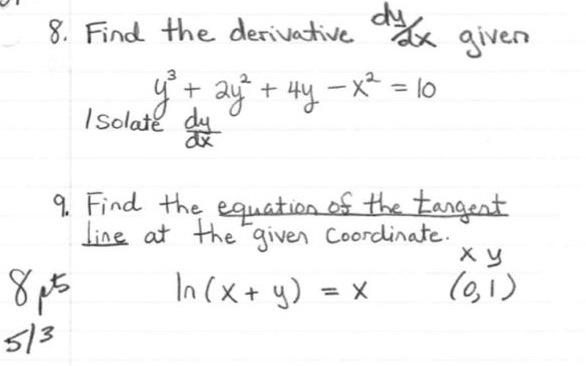 8. Find the derivative dy/dx given
y³ + 2y² + 4y - x² = 10
Isolate dy/dx
9. Find the equation of the tangent
line at the given coordinate.
x y
8 pts ln(x + y) = x (0,1)
5/3